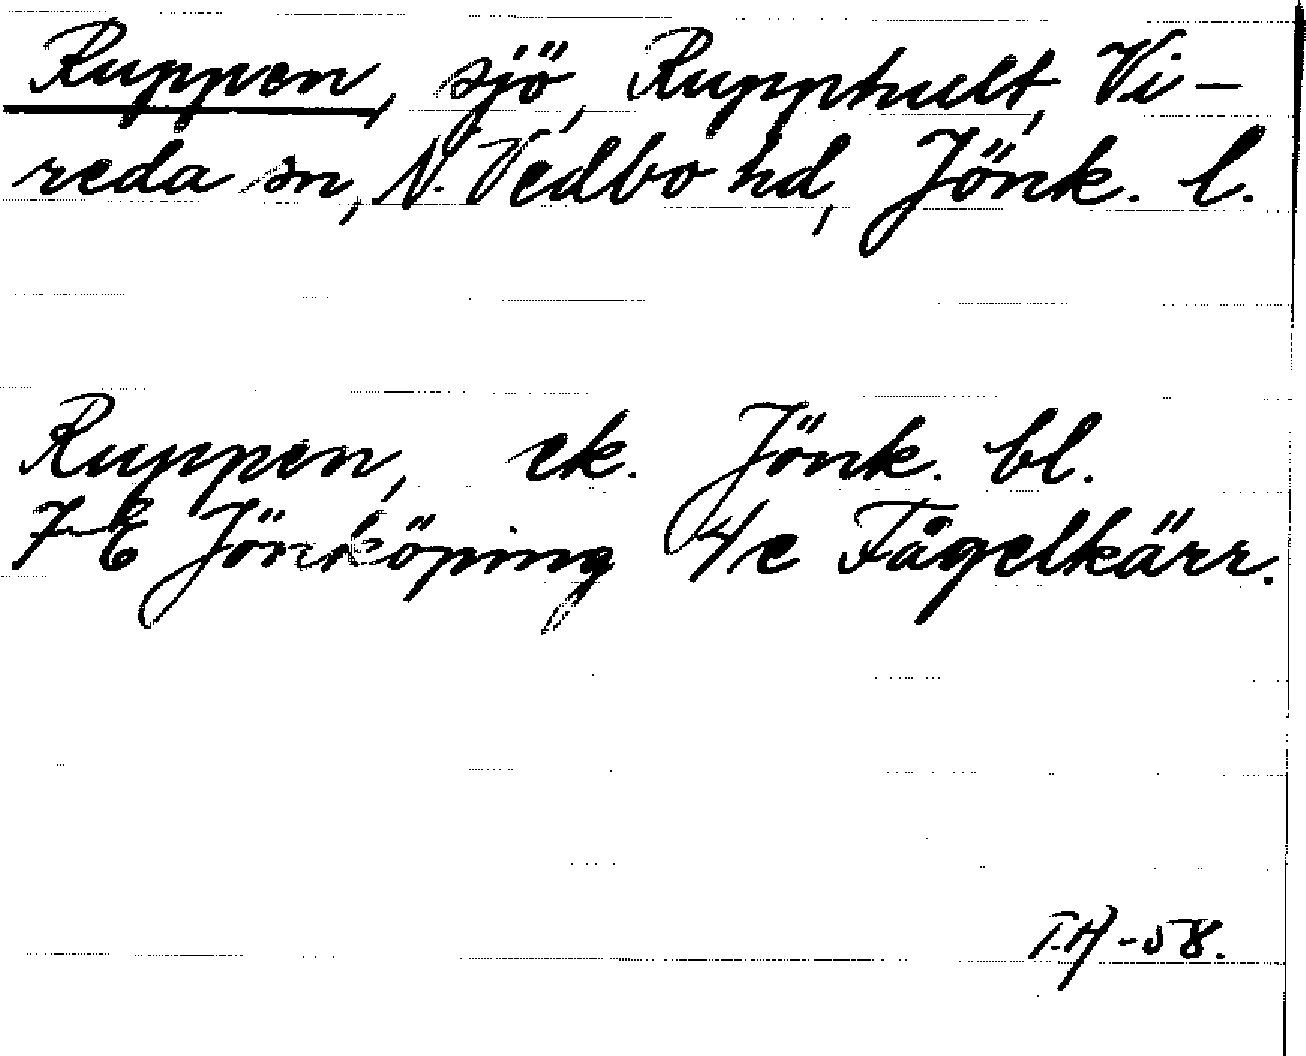 Ruppen, sjö, Rupphult, Vi-
reda sn, N. Vedbo hd, Jönk. l.
Ruppen, ek. Jönk. bl.
7 E Jönköping 4/c Fågelkärr.
T.H -58.